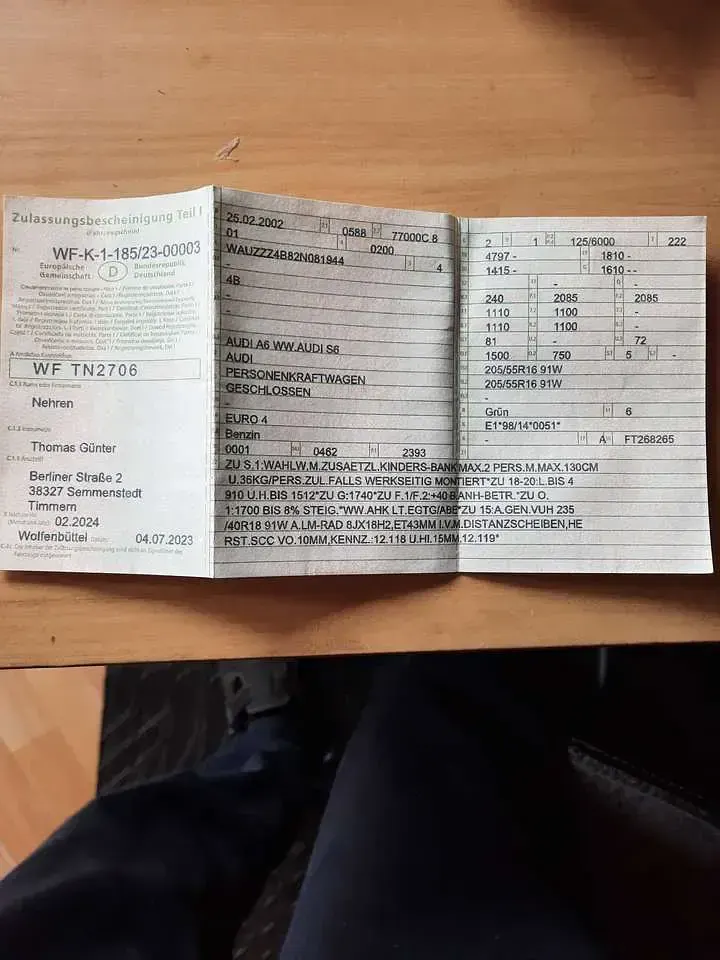 Zulassungsbescheinigung Teil I
(Fahrzeugschein)
Nr. WF-K-1-185/23-00003
Europäische Gemeinschaft D Bundesrepublik Deutschland
WF TN2706
C.1.1 Name oder Firmenname
Nehren
C.1.2 Vorname(n)
Thomas Günter
C.1.3 Anschrift
Berliner Straße 2
38327 Semmenstedt
Timmern
02.2024
Wolfenbüttel Datum: 04.07.2023
25.02.2002 0588 77000C 8
01 0200
WAUZZZ4B82N081944 4
-
4B
-
-
AUDI A6 WW.AUDI S6
AUDI
PERSONENKRAFTWAGEN
GESCHLOSSEN
-
EURO 4
Benzin
0001 0462 2393
2 1 125/6000 222
4797 - 1810 -
1415 - 1610 --
- -
240 2085 2085
1110 1100 -
1110 1100 -
81 - 72
1500 750 5 -
205/55R16 91W
205/55R16 91W
-
Grün 6
E1*98/14*0051*
- A FT268265
ZU S.1:WAHLW.M.ZUSAETZL.KINDERS-BANK MAX.2 PERS.M.MAX.130CM
U.36KG/PERS.ZUL.FALLS WERKSEITIG MONTIERT*ZU 18-20:L.BIS 4
910 U.H.BIS 1512*ZU G:1740*ZU F.1/F.2:+40 B.ANH-BETR.*ZU O.
1:1700 BIS 8% STEIG.*WW.AHK LT.EGTG/ABE*ZU 15:A.GEN.VUH 235
/40R18 91W A.LM-RAD 8JX18H2,ET43MM I.V.M.DISTANZSCHEIBEN,HE
RST.SCC VO.10MM,KENNZ.:12.118 U.HI.15MM,12.119*